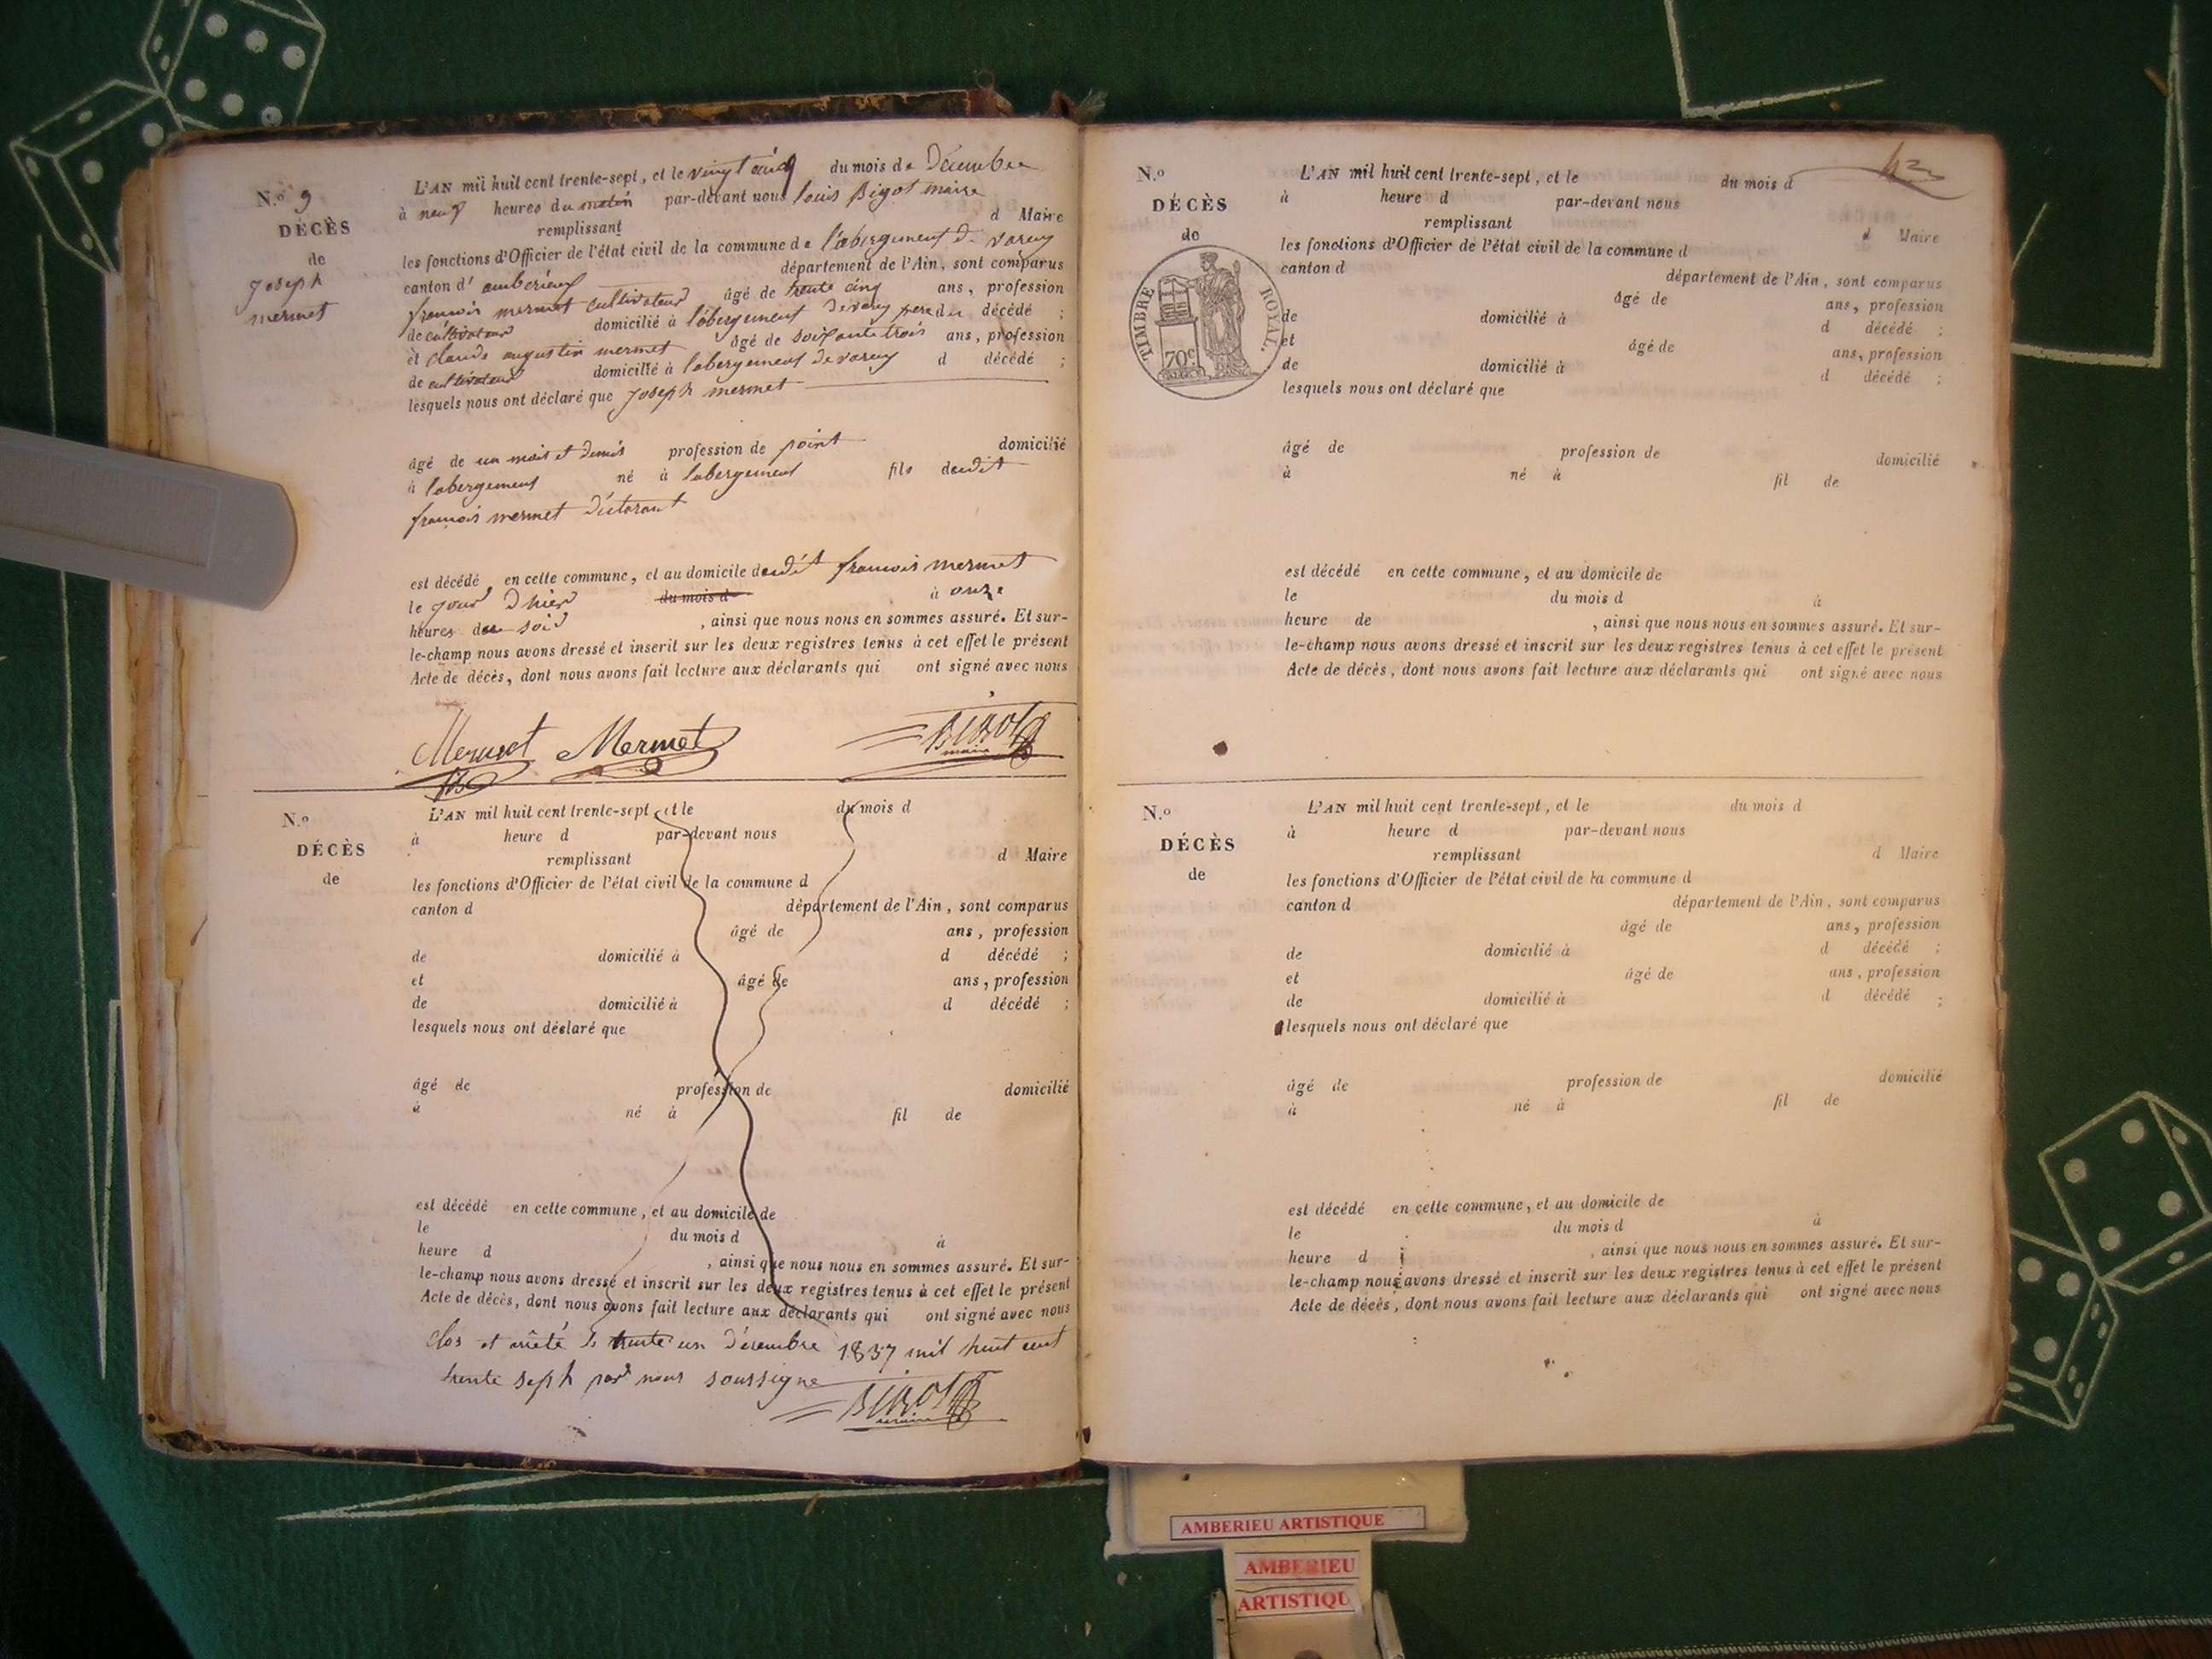 N.o 9
DÉCÈS
de
Joseph
mermet
L'AN mil huit cent trente-sept, et le vingt cinq du mois de Décembre
à neuf heures du matin par-devant nous louis Bigot maire
remplissant d Maire
les fonctions d'Officier de l'état civil de la commune de l'abergement de varey
canton d' amberieux département de l'Ain, sont comparus
francois mermet cultivateur âgé de trente cinq ans, profession
de cultivateur domicilié à l'abergement de varey pere du décédé ;
et claude augustin mermet âgé de soixante trois ans, profession
de cultivateur domicilié à l'abergement de varey d décédé ;
lesquels nous ont déclaré que Joseph mermet
âgé de un mois et demis profession de point domicilié
à labergement né à labergement fils dudit
francois mermet déclarant
est décédé en cette commune, et au domicile dudit francois mermet
le jour d'hier du mois d à onze
heures du soir , ainsi que nous nous en sommes assuré. Et sur-
le-champ nous avons dressé et inscrit sur les deux registres tenus à cet effet le présent
Acte de décès, dont nous avons fait lecture aux déclarants qui ont signé avec nous
Mermet Mermet Bigot
maire
N.o
DÉCÈS
de
L'AN mil huit cent trente-sept, et le du mois d
à heure d par-devant nous
remplissant d Maire
les fonctions d'Officier de l'état civil de la commune d
canton d département de l'Ain, sont comparus
âgé de ans, profession
de domicilié à d décédé ;
et âgé de ans, profession
de domicilié à d décédé ;
lesquels nous ont déclaré que
âgé de profession de domicilié
à né à fil de
est décédé en cette commune, et au domicile de
le du mois d à
heure d , ainsi que nous nous en sommes assuré. Et sur-
le-champ nous avons dressé et inscrit sur les deux registres tenus à cet effet le présent
Acte de décès, dont nous avons fait lecture aux déclarants qui ont signé avec nous
Clos et arrêté le trente un Décembre 1837 mil huit cent
trente seph par nous soussigne
Bigot
maire
42
N.o
DÉCÈS
de
TIMBRE ROYAL.
70c
L'AN mil huit cent trente-sept, et le du mois d
à heure d par-devant nous
remplissant d Maire
les fonctions d'Officier de l'état civil de la commune d
canton d département de l'Ain, sont comparus
âgé de ans, profession
de domicilié à d décédé ;
et âgé de ans, profession
de domicilié à d décédé ;
lesquels nous ont déclaré que
âgé de profession de domicilié
à né à fil de
est décédé en cette commune, et au domicile de
le du mois d à
heure de , ainsi que nous nous en sommes assuré. Et sur-
le-champ nous avons dressé et inscrit sur les deux registres tenus à cet effet le présent
Acte de décès, dont nous avons fait lecture aux déclarants qui ont signé avec nous
N.o
DÉCÈS
de
L'AN mil huit cent trente-sept, et le du mois d
à heure d par-devant nous
remplissant d Maire
les fonctions d'Officier de l'état civil de la commune d
canton d département de l'Ain, sont comparus
âgé de ans, profession
de domicilié à d décédé ;
et âgé de ans, profession
de domicilié à d décédé ;
lesquels nous ont déclaré que
âgé de profession de domicilié
à né à fil de
est décédé en cette commune, et au domicile de
le du mois d à
heure d , ainsi que nous nous en sommes assuré. Et sur-
le-champ nous avons dressé et inscrit sur les deux registres tenus à cet effet le présent
Acte de décès, dont nous avons fait lecture aux déclarants qui ont signé avec nous
AMBERIEU ARTISTIQUE
AMBERIEU
ARTISTIQU